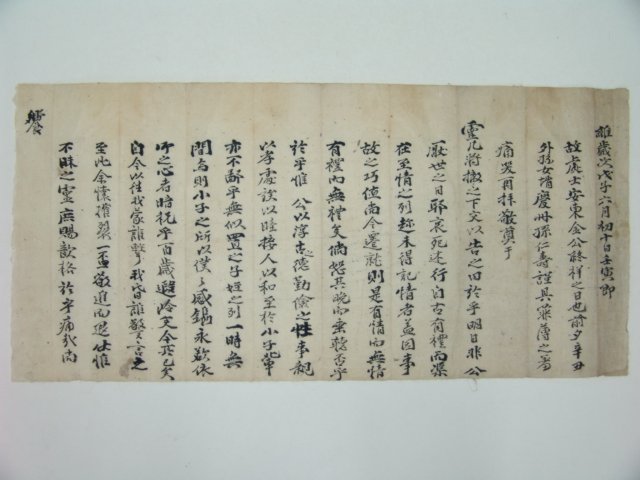 維歲次戊子六月初十日壬寅卽
故處士安東金公終祥之日也前夕辛丑
外孫女壻慶州孫仁壽謹具菲薄之羞
痛哭再拜敬奠于
靈几將撤之下文以告之曰於乎明日非公
厭世之日耶喪死述行自古有禮而渠
在至情之列趂未得記情者盖因事
故之巧値而今遷就則是有情而無情
有禮而無禮矣倘恕其晩而垂聆否乎
於乎惟公以淳古之德勤儉之性事親
以孝處族以睦接人以和至於小子輩
亦不鄙乎無似置之子姪之列一時無
間焉則小子之所以僕僕感鏤永欲依
仰之心者暗祝乎百歲遐齡矣今焉已矣
自今以往我蒙誰擊我昏誰警言之
至此余懷摧裂一盃敬進而退伏惟
不昧之靈庶賜歆格於乎痛哉尙
饗